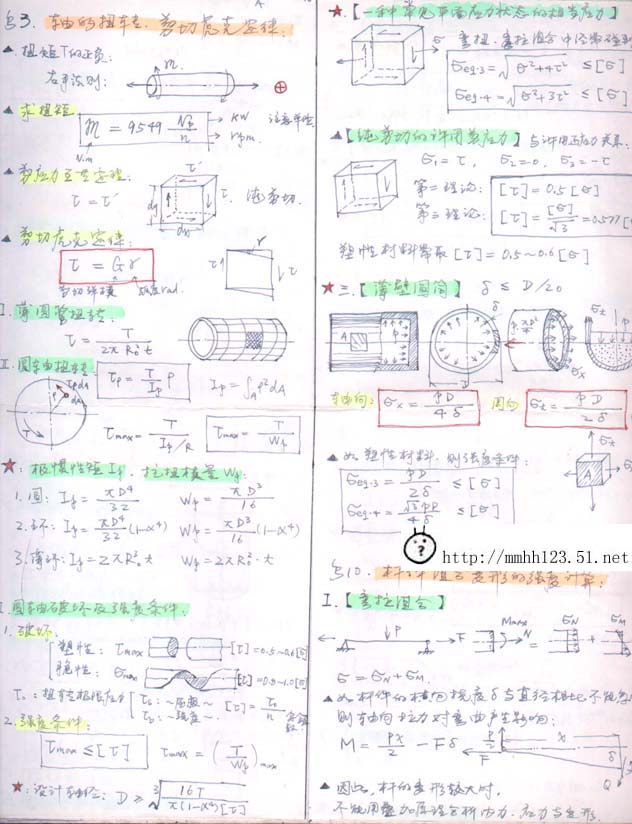 §3. 轴的扭转. 剪切虎克定律:
▲ 扭矩T的正负:
右手法则: m. ⊕
▲ 求扭矩
m = 9549 Np/n → kW 注意单位
→ rpm.
N.m
▲ 剪应力互等定理:
τ = τ′ 纯剪切.
dy dx τ′ τ
▲ 剪切虎克定律:
τ = Gγ
剪切弹模 弧度rad.
I. 薄圆管扭转:
τ = T / 2πR₀²t
II. 圆轴扭转
τρ = T/Iρ ρ Iρ = ∫A ρ²dA
τmax = T / Iρ/R τmax = T/Wρ
★: 极惯性矩Iρ. 抗扭模量Wρ:
1. 圆: Iρ = πD⁴/32 Wρ = πD³/16
2. 环: Iρ = πD⁴/32 (1-α⁴) Wρ = πD³/16 (1-α⁴)
3. 薄环: Iρ = 2πR₀³·t Wρ = 2πR₀²·t
I. 圆轴破坏及强度条件.
1. 破坏:
塑性: τmax [τ] = 0.5~0.6[σ]
脆性: σmax [τ] = 0.8~1.0[σ]
τ₀: 扭转极限应力 τs: ~屈服~ τb: ~强度~ [τ] = τ₀/n 安全系数
2. 强度条件:
τmax ≤ [τ] τmax = (T/Wρ)max
★: 设计轴径: D ≥ ∛16T/π(1-α⁴)[τ]
★.【一种常见平面应力状态的相当应力】
弯扭.
σeq.3 = √σ²+4τ² ≤ [σ]
σeq.4 = √σ²+3τ² ≤ [σ]
▲【纯剪切的许用剪应力】与许用正应力关系:
σ₁ = τ, σ₂ = 0, σ₃ = -τ
理论: [τ] = 0.5[σ]
理论: [τ] = [σ]/√3 = 0.577[
塑性材料常取 [τ] = 0.5~0.6[σ]
★ 三.【薄壁圆筒】 δ ≤ D/20
轴向: σx = pD/4δ 周向 σt = pD/2δ
▲ 如塑性材料. 则强度条件:
σeq.3 = pD/2δ ≤ [σ]
σeq.4 = √3pD/4δ ≤ [σ]
http://mmhh123.51.net
§10. 杆件组合变形的强度计算:
I.【弯拉组合】
P F Mmax N σN σM
σ = σN + σM.
▲ 如杆件的横向挠度δ与直径相比不能忽
则轴向拉力对弯曲产生影响:
M = Px/2 - Fδ
▲ 因此, 杆的变形较大时.
不能用叠加原理分析内力. 应力与变形.